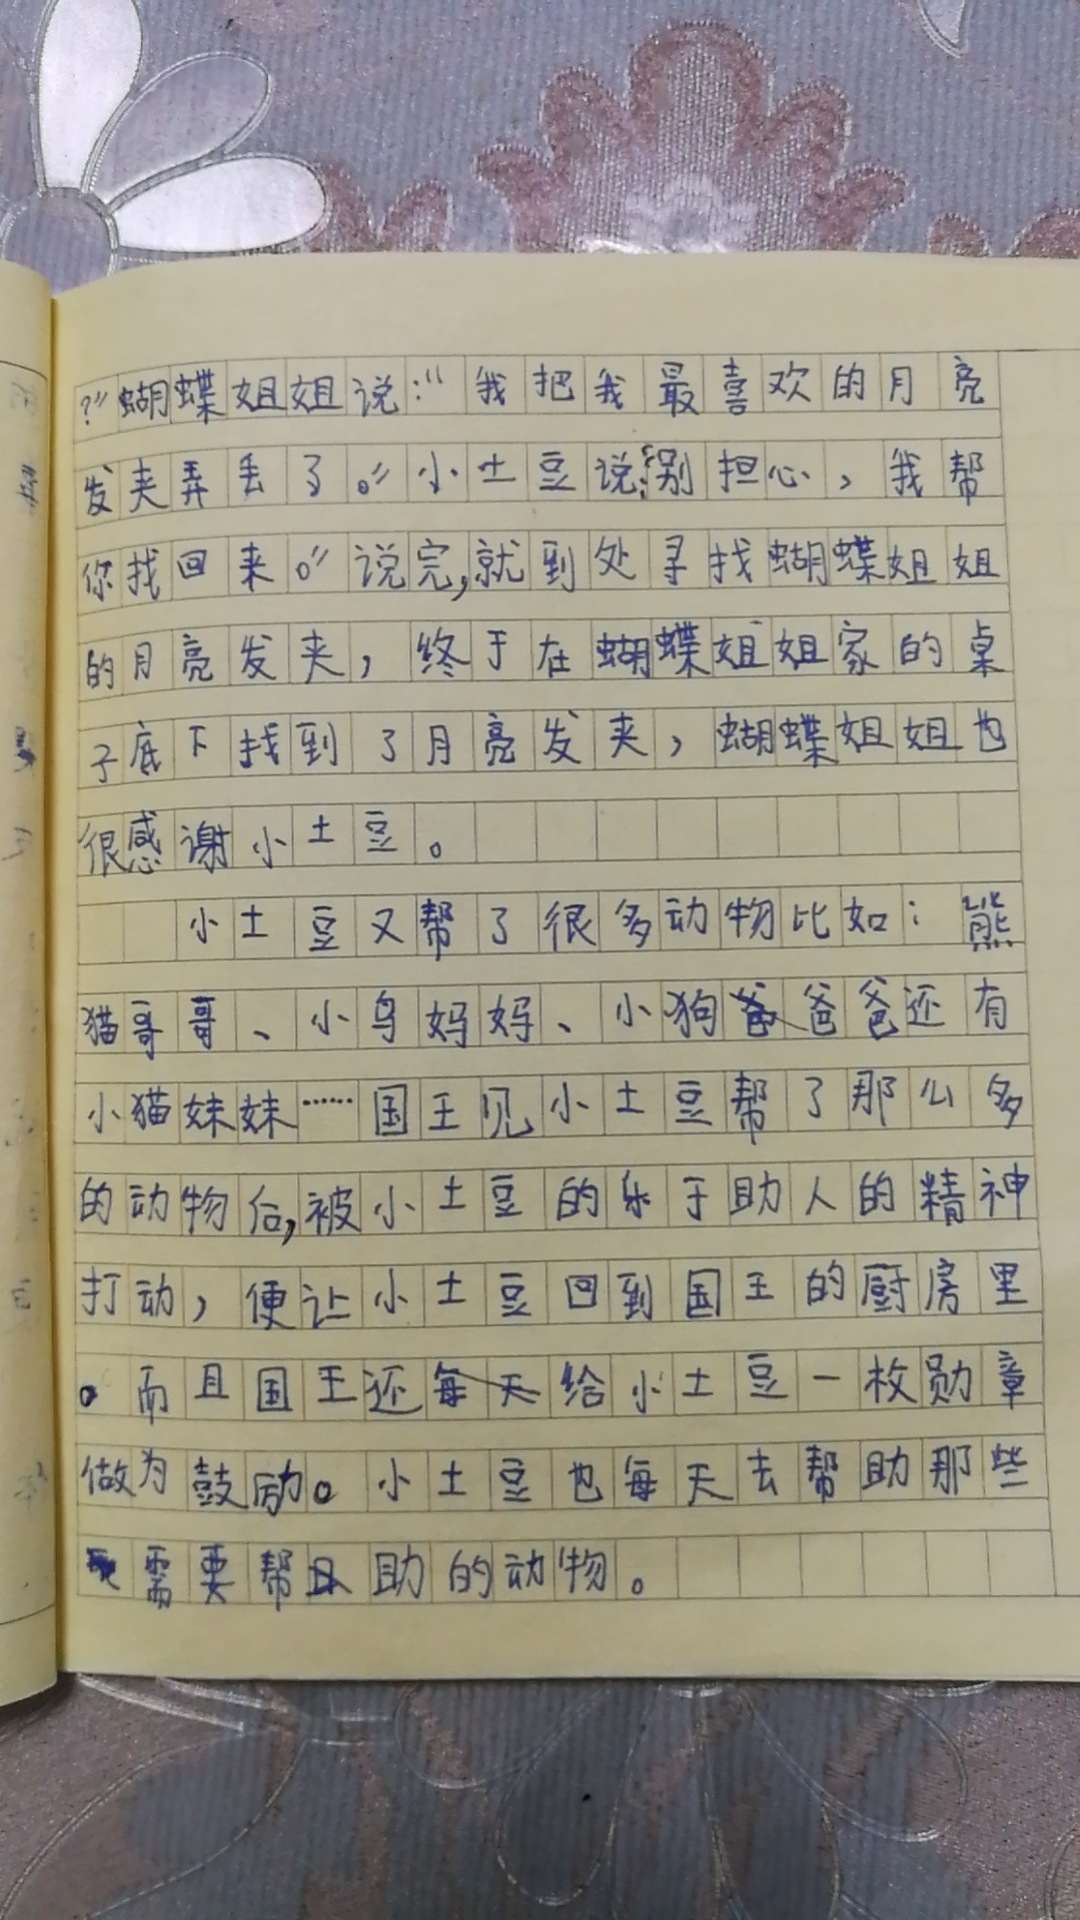 ？”蝴蝶姐姐说：“我把我最喜欢的月亮
发夹弄丢了。”小土豆说：“别担心，我帮
你找回来。”说完，就到处寻找蝴蝶姐姐
的月亮发夹，终于在蝴蝶姐姐家的桌
子底下找到了月亮发夹，蝴蝶姐姐也
很感谢小土豆。
小土豆又帮了很多动物比如：熊
猫哥哥、小鸟妈妈、小狗爸爸还有
小猫妹妹……国王见小土豆帮了那么多
的动物后，被小土豆的乐于助人的精神
打动，便让小土豆回到国王的厨房里
。而且国王还给小土豆一枚勋章
做为鼓励。小土豆也每天去帮助那些
需要帮助的动物。